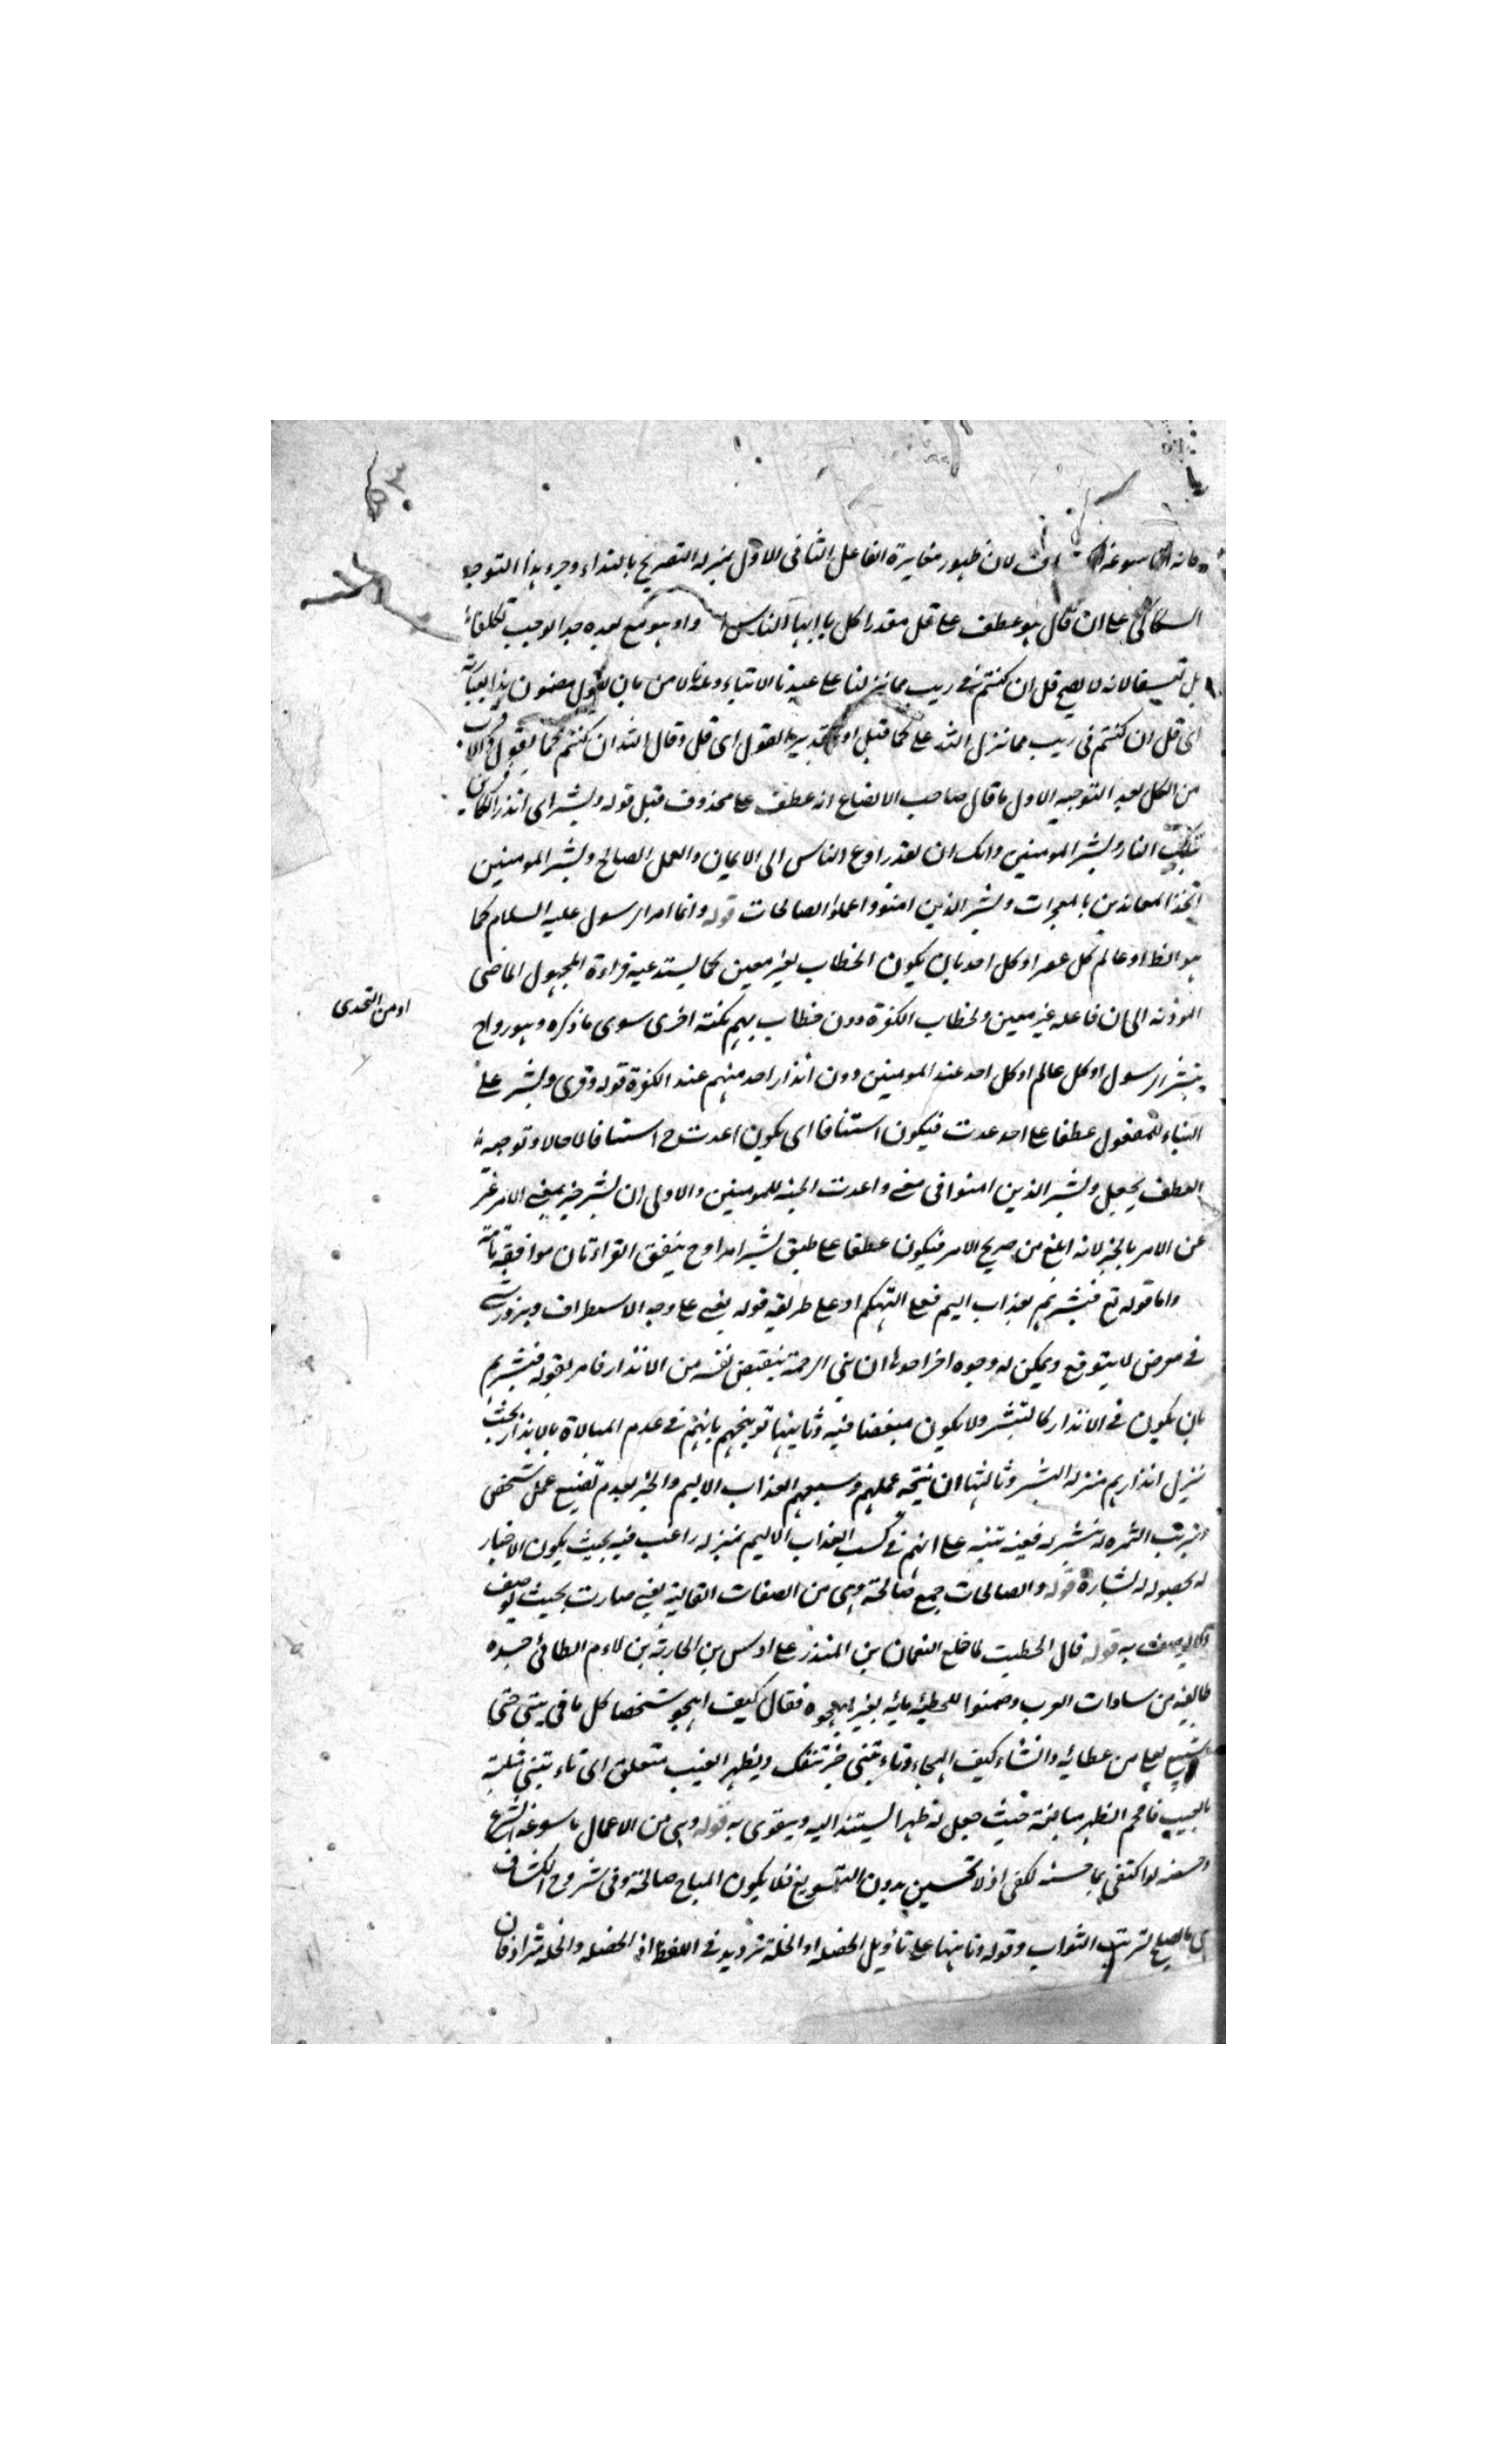 لان ظهور مغايرة الفاعل الثانى الاول بمنزلة التصريح بالنداء وجه هذا التوجيه
السكاكى على ان قال هو عطف على قل مقدرا كل يا ايها الناس او هو مع بعده جدا لوجب تكلفا
بل تعسفا لانه لا يصح قل ان كنتم فى ريب مما نزلنا على عبدنا الا بان مضمون هذا العبارة
اى قل ان كنتم فى ريب مما نزل الله على كما قيل او تقدير القول اى قل وقال الله ان كنتم كما يقول
من الكل بعد التوجيه الاول ما قال صاحب الايضاح انه عطف على محذوف قبل قوله وبشر اى انذر الكفار
النار وبشر المومنين ولك ان تقدر ادع الناس الى الايمان والعمل الصالح وبشر المومنين
المعاندين بالمعجزات وبشر الذين امنوا وعملوا الصالحات قوله وانما امر الرسول عليه السلام كما
هو الظ او عالم كل عصر او كل احد بان يكون الخطاب لغير معين كما يستدعيه قراءة المجهول الماضى
الى ان فاعله غير معين ولخطاب الكفرة دون خطاب بهم نكتة اخرى سوى ما ذكره وهو رواج
الرسول او كل عالم او كل احد عند المومنين دون انذار احد منهم عند الكفرة قوله وقرى وبشر على
البناء للمفعول عطفا على اعدت فيكون استئنافا اى يكون اعدت ح استئنافا لا حالا وتوجيه
العطف يجعل وبشر الذين امنوا فى معنى واعدت الجنة للمومنين والاولى ان بشر خبر بمعنى الامر
عن الامر بالخبر لانه ابلغ من صريح الامر فيكون عطفا على طبق بشر امرا وح يتفق القراءتان موافقة تامة
واما قوله تع فبشرهم بعذاب اليم فعلى التهكم او على طريقة قوله يعنى على وجه الاستطراف
فى معرض لا يتوقع ويمكن له وجوه اخر احدها ان نبى الرحمة ينقبض نفسه من الانذار فامر بقوله فبشرهم
بان يكون فى الانذار كالتبشر ولا يكون منقبضا فيه وثانيها توبيخهم بانهم فى عدم المبالاة بالانذار بحيث
نزل انذارهم منزلة التبشر وثالثها ان نتيجة عملهم وسعيهم العذاب الاليم والخبر بعدم تضييع عمل شخص
الثمرة له تبشر له ففيه تنبيه على انهم فى كسب العذاب الاليم بمنزلة راغب فيه بحيث يكون الاخبار
له بحصوله له بشارة قوله والصالحات جمع صالحة وهى من الصفات الغالبة يعنى صارت بحيث يوصف
به قوله قال الحطيئة لما خلع النعمان بن المنذر على اوس بن الحارثة بن لام الطائى حسده
طائفة من سادات العرب وضمنوا للحطيئة مائة بعير ليهجوه فقال كيف اهجو شخصا كل ما فى بيتى حتى
نعلى من عطائه وانشاء كيف الهجاء وبظهر الغيب متعلق اى تاتينى
بالغيب فاقحم الظهر مبالغة حيث جعل له ظهرا يستند اليه ويتقوى به قوله وهى من الاعمال ما سوغه الشرع
وحسنه لو اكتفى بما حسنه لكفى اذ لا تحسين بدون التسويغ فلا يكون المباح صالحة وفى شروح الكشاف
ما يصلح لترتب الثواب وقوله وتانيثها على تأويل الخصلة او الخلة ترديد فى اللفظ اذ الخصلة والخلة مترادفان
او من التحدى